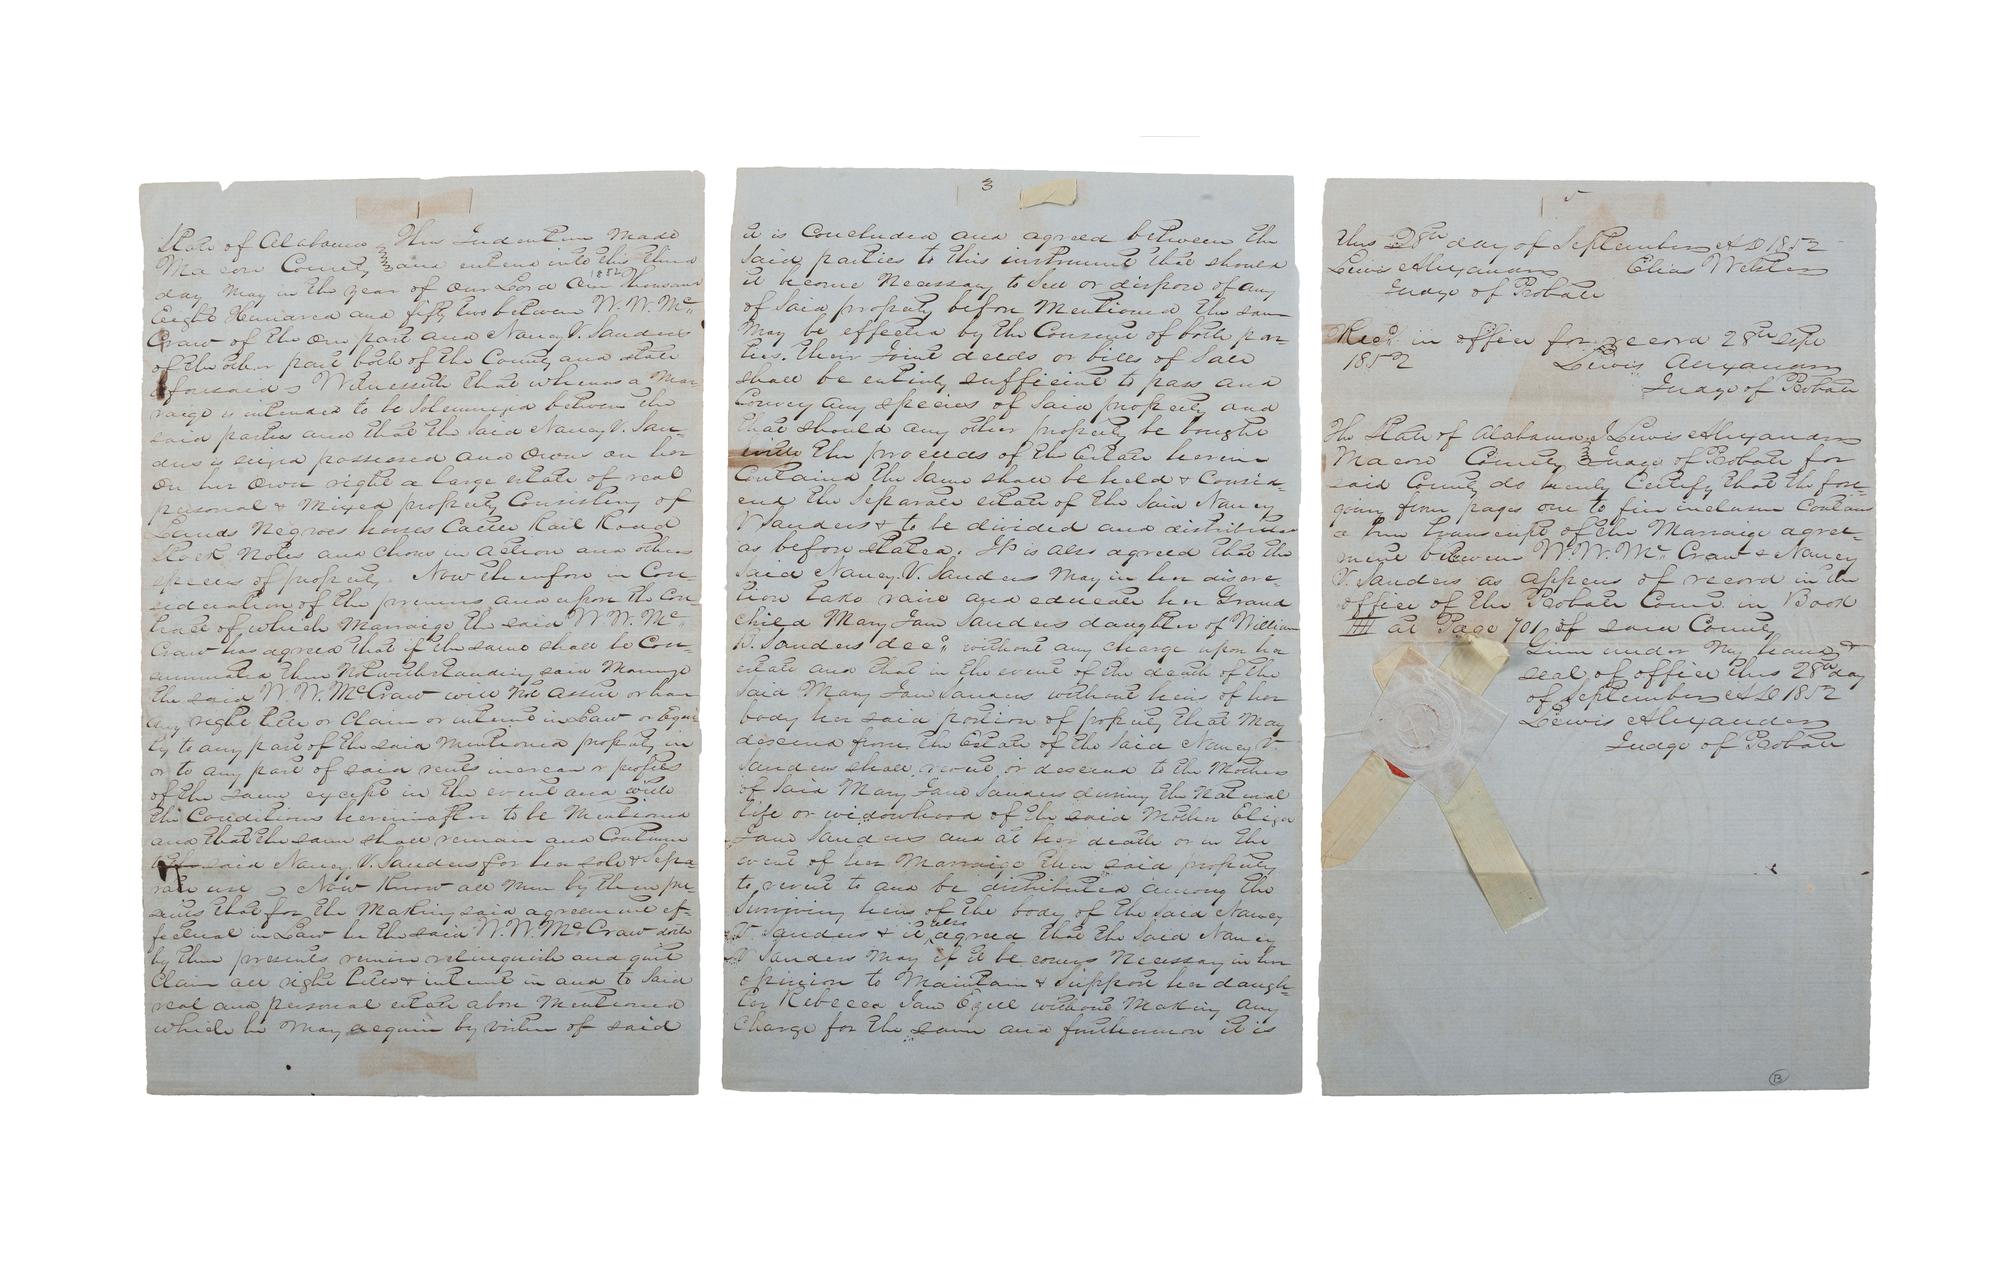 State of Alabama } This Indenture Made
Macon County } and entered into this third
1852
day May in the year of Our Lord One Thousand
Eight Hundred and fifty two between W. W. Mc
Craw of the One part and Nancy V. Sanders
of the other part both of the County and State
aforesaid Witnesseth that whereas a Mar-
raige is intended to be Solemnized between the
said parties and that the said Nancy V. San-
ders is seized possessed and Owns on her
On her Own right a large estate of real
personal & Mixed property Consisting of
Lands Negroes horses Cattle Rail Road
Stock Notes and Choses in Action and others
species of property. Now therefore in Con-
sideration of the premises and upon the Con-
tract of which Marraige the said W. W. Mc
Craw has agreed that if the same shall be Con-
summated then Notwithstanding said Marraige
the said W. W. McCraw will Not assue or have
any right title or Claim or interest in Law or Equi
ty to any part of the said Mentioned property in
or to any part of said rents increase or profits
of the same except in the event and with
the Conditions hereinafter to be Mentioned
and that the same shall remain and Continue
said Nancy V. Sanders for her sole & Sepa
rate use Now Know all Men by these pre-
sents that for the Making said agreement ef-
fectual in Law he the said W. W. McCraw doth
by these presents remise relinquish and quit
Claim all right title & interest in and to said
real and personal estate above Mentioned
which he May acquire by virtue of said
3
it is Concluded and agreed between the
Said parties to this instrument that should
it become Necessary to Sell or dispose of any
of Said property before Mentioned the same
May be effected by the Consent of both par-
ties. their Joint deeds or bills of Sale
shall be entirely sufficient to pass and
Convey any species of Said property and
that should any other property be bought
with the proceeds of the Estate herein
Contained the Same shall be held & Consid-
ered the Separate estate of the Said Nancy
V Sanders & to be divided and distributed
as before stated. It is also agreed that the
Said Nancy V. Sanders May in her discre-
tion take raise and educate her Grand
child Mary Jane Sanders daughter of William
D. Sanders dec'd without any charge upon her
estate and that in the event of the death of the
Said Mary Jane Sanders without heirs of her
body her said portion of property that May
descend from the Estate of the Said Nancy V.
Sanders shall revert or descend to the Mother
of Said Mary Jane Sanders during the Natural
life or widowhood of the said Mother Eliza
Jane Sanders and at her death or in the
event of her Marraige then said property
to revert to and be distributed among the
Surviving heirs of the body of the Said Nancy
also
V. Sanders & it agreed that the Said Nancy
V Sanders May if it becomes Necessary in her
opinion to Maintain & Support her daugh-
ter Rebecca Jane without Making any
Charge for the same and furthermore it is
5
this 28th day of September AD 1852
Lewis Alexander Elias Webster
Judge of Probate
Recd in office for record 28th Sept
1852 Lewis Alexander
Judge of Probate
The State of Alabama } I Lewis Alexander
Macon County } Judge of Probate for
said County do hereby Certify that the fore-
going five pages one to five inclusive Contain
a true transcript of the Marraige agree-
ment between W. W. McCraw & Nancy
V. Sanders as appears of record in the
office of the Probate Court in Book
III at Page 701 of said County
Given under My hand &
seal of office this 28th day
of September AD 1852
Lewis Alexander
Judge of Probate
B